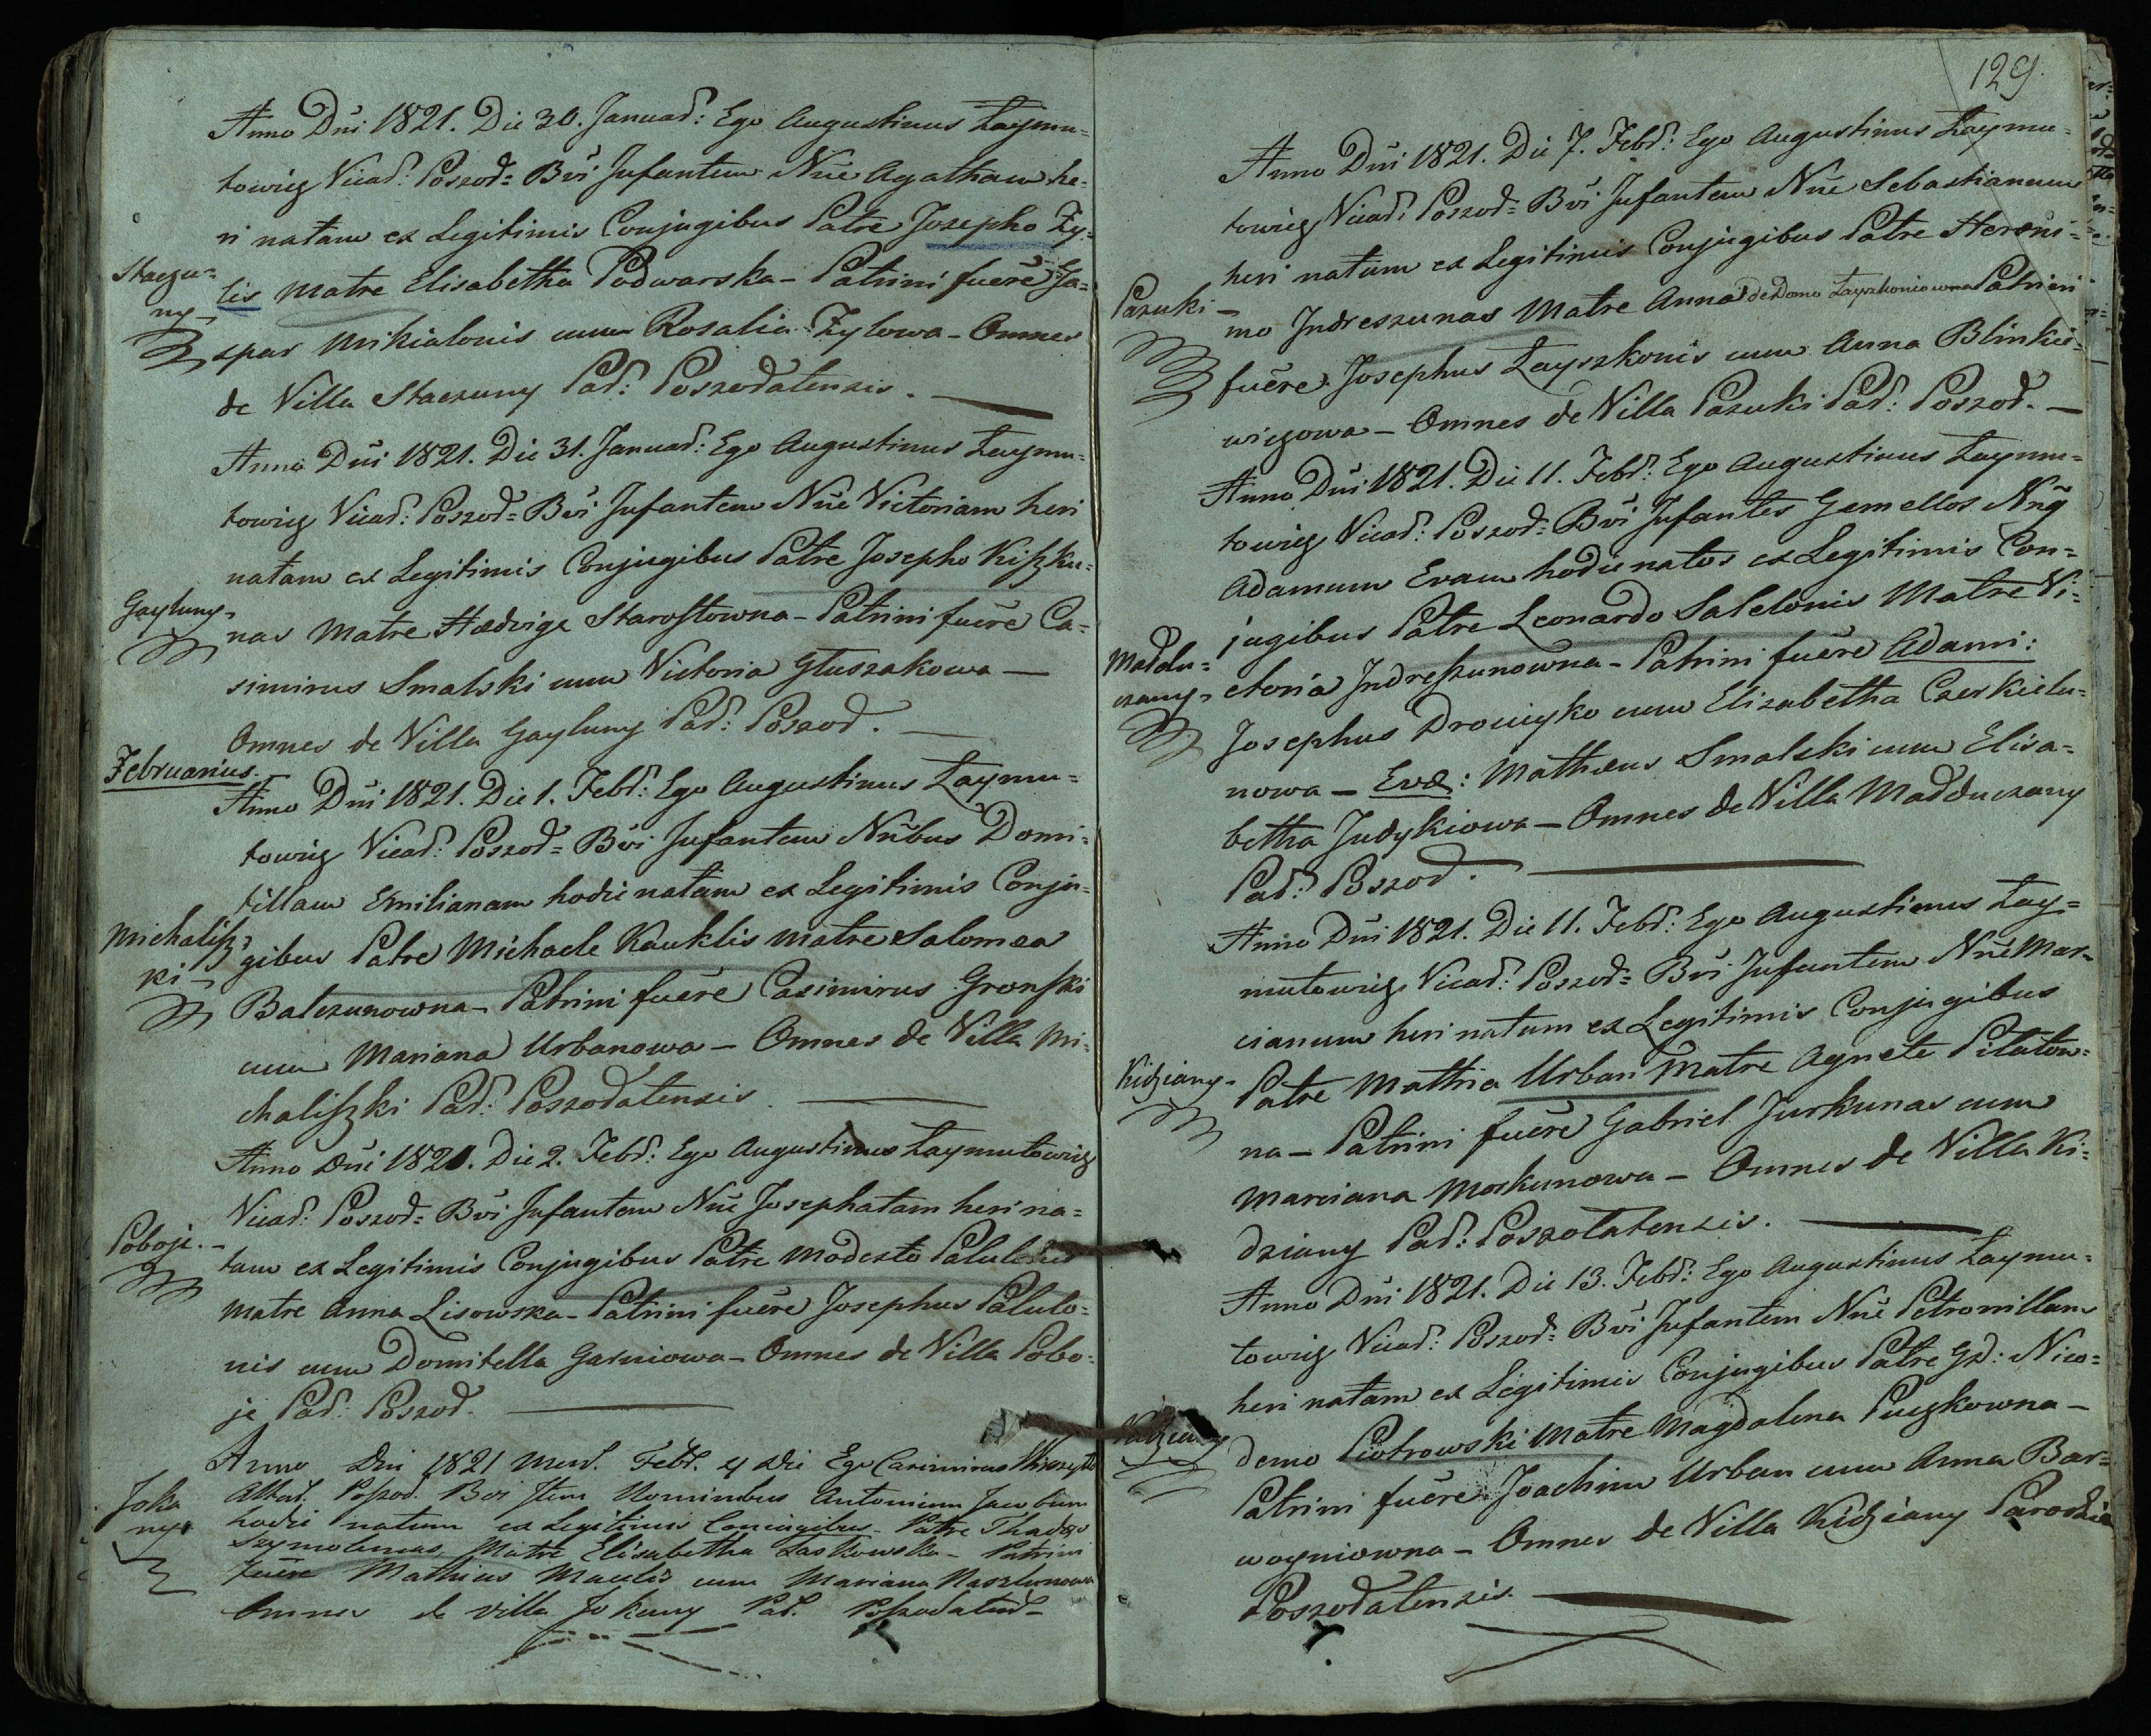 Anno Dni 1821. Die 30. Januar: Ego Augustinus Laymu=
towicz Vicar: Poszod= Bvi Infantem Nne Agatham he=
ri natam ex Legitimis Conjugibus Patre Josepho Zy=
Staczu=
ny
lis Matre Elisabetha Podwarska – Patrini fuere Ga=
spar Mikialonis cum Rosalia Zylowa – Omnes
de Villa Staczuny Par: Poszodatensis. —
Anno Dni 1821. Die 31. Januar: Ego Augustinus Laymu=
towicz Vicar: Poszod= Bvi Infantem Nne Victoriam heri
natam ex Legitimis Conjugibus Patre Josepho Kiszku=
Gayluny
nas Matre Hedvige Starostowna – Patrini fuere Ca=
simirus Smalski cum Victoria Gluszakowa —
Omnes de Villa Gayluny Par: Poszod. —
Februarius.
Anno Dni 1821. Die 1. Febr: Ego Augustinus Laymu=
towicz Vicar: Poszod= Bvi Infantem Nnbus Domi=
tillam Emilianam hodie natam ex Legitimis Conju=
Michalisz=
ki
gibus Patre Michaele Kauklis Matre Salomea
Balczunowna – Patrini fuere Casimirus Gronski
cum Mariana Urbanowa – Omnes de Villa Mi=
chaliszki Par: Poszodatensis. —
Anno Dni 1821. Die 2. Febr: Ego Augustinus Laymutowicz
Vicar: Poszod= Bvi Infantem Nne Josephatam heri na=
Poboje.
tam ex Legitimis Conjugibus Patre Modesto
Matre Anna Lisowska – Patrini fuere Josephus Palulo=
nis cum Domitella Garniowa – Omnes de Villa Pobo=
je Par: Poszod. —
Anno Dni 1821 Mens. Febr. 4 Die Ego Casimirus
Joku
ny
Altar. Poszod. Bvi Item Nominibus Antonium Jacobum
hodie natum ex Legitimis Coniugibus Patre Thadeo
Szymolunas, Matre Elisabetha Laskowska – Patrini
fuere Mathias Maculis cum Mariana
Omnes de villa Jokuny Par. Poszodatens—
129.
Anno Dni 1821. Die 7. Febr: Ego Augustinus Laymu=
towicz Vicar: Poszod= Bvi Infantem Nne Sebastianum
heri natum ex Legitimis Conjugibus Patre Heroni=
Pazuki –
mo Indreszunas Matre Anna de Domo Layszkoniowna Patrini
fuere Josephus Layszkonis cum Anna Blinkie=
wiczowa – Omnes de Villa Pazuki Par: Poszod. —
Anno Dni 1821. Die 11. Febr: Ego Augustinus Laymu=
towicz Vicar: Poszod= Bvi Infantes Gemellos Nng
Adamum Evam hodie natos ex Legitimis Con=
jugibus Patre Leonardo Salelonis Matre Vi=
Maddu=
czany
ctoria Indreszunowna – Patrini fuere Adami:
Josephus Drouczko cum Elisabetha Czerkielu=
nowa – Evæ: Mathæus Smalski cum Elisa=
betha Judykiowa – Omnes de Villa Madduczany
Par: Poszod. —
Anno Dni 1821. Die 11. Febr: Ego Augustinus Lay=
mutowicz Vicar: Poszod= Bvi Infantem Nne Mar=
cianum heri natum ex Legitimis Conjugibus
Kidziany
Patre Mathia Urban Matre Agnete Pilatow=
na – Patrini fuere Gabriel Jurkunas cum
Marciana Morkunowa – Omnes de Villa Ki=
dziany Par: Poszolatensis. —
Anno Dni 1821. Die 13. Febr: Ego Augustinus Laymu=
towicz Vicar: Poszod= Bvi Infantem Nne Petronillam
heri natam ex Legitimis Conjugibus Patre Gd: Nico=
Kidziany
demo Piotrowski Matre Magdalena Puczkowna –
Patrini fuere Joachim Urban cum Anna Bar=
woyniowna – Omnes de Villa Kidziany Parochiæ
Poszodatensis. —